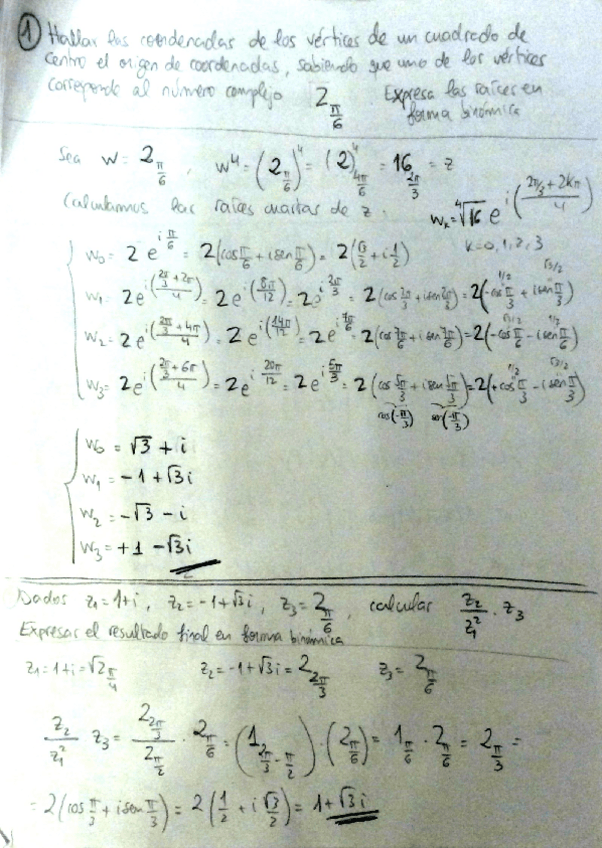 ① Hallar las coordenadas de los vértices de un cuadrado de
centro el origen de coordenadas, sabiendo que uno de los vértices
corresponde al número complejo 2_{π/6} Expresa las raíces en
forma binómica
Sea w = 2_{π/6}, w⁴ = (2_{π/6})⁴ = (2)⁴_{4π/6} = 16_{2π/3} = z
Calculamos las raíces cuartas de z. w_k = ⁴√16 e^{i((2π/3 + 2kπ)/4)}
k = 0, 1, 2, 3
w₀ = 2 e^{i π/6} = 2(cos π/6 + i sen π/6) = 2(√3/2 + i 1/2)
w₁ = 2e^{i((2π/3 + 2π)/4)} = 2e^{i(8π/12)} = 2e^{i 2π/3} = 2(cos 2π/3 + i sen 2π/3) = 2(-cos π/3 + i sen π/3) 1/2 √3/2
w₂ = 2e^{i((2π/3 + 4π)/4)} = 2e^{i(14π/12)} = 2e^{i 7π/6} = 2(cos 7π/6 + i sen 7π/6) = 2(-cos π/6 - i sen π/6) √3/2 1/2
w₃ = 2e^{i((2π/3 + 6π)/4)} = 2e^{i 20π/12} = 2e^{i 5π/3} = 2(cos 5π/3 + i sen 5π/3) = 2(+cos π/3 - i sen π/3) 1/2 √3/2
cos(-π/3) sen(-π/3)
w₀ = √3 + i
w₁ = -1 + √3 i
w₂ = -√3 - i
w₃ = +1 - √3 i
Dados z₁ = 1+i, z₂ = -1+√3 i, z₃ = 2_{π/6}, calcular z₂/z₁² · z₃
Expresar el resultado final en forma binómica
z₁ = 1+i = √2_{π/4} z₂ = -1+√3 i = 2_{2π/3} z₃ = 2_{π/6}
z₂/z₁² z₃ = 2_{2π/3}/2_{π/2} · 2_{π/6} = (1_{2π/3 - π/2}) · (2_{π/6}) = 1_{π/6} · 2_{π/6} = 2_{π/3} =
= 2(cos π/3 + i sen π/3) = 2(1/2 + i √3/2) = 1+√3 i